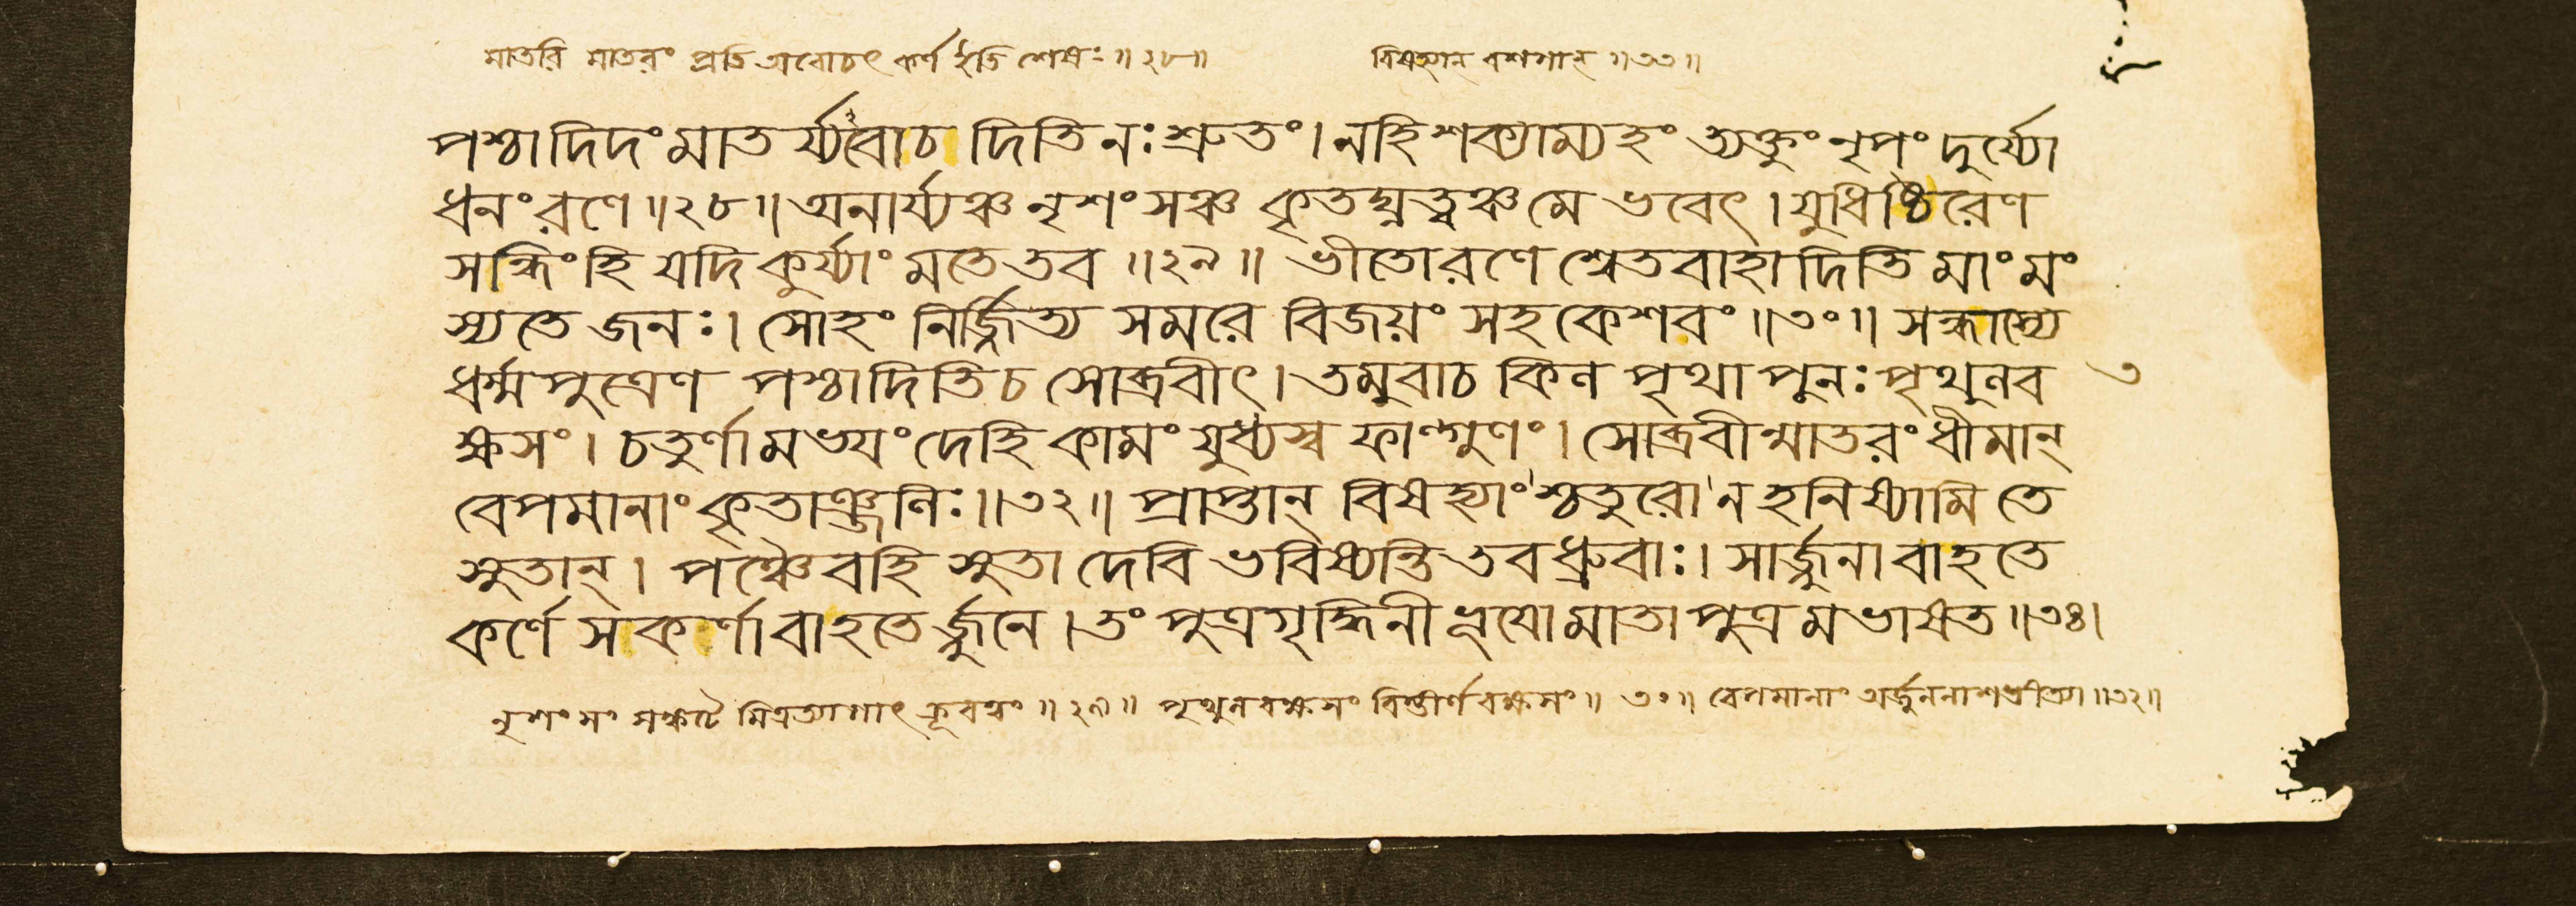 মাতরি মাতরং প্রতি অবোচৎ কর্ণ ইতি শেষঃ॥২৮॥ বিষহ্যান্ বশগান্॥৩৩॥
পশ্চাদিদং মাতর্য্যবোচদিতিনঃ শ্রুতং। নহি শক্যাম্যহং ত্যক্তুং নৃপং দুর্য্যো
ধনং রণে॥২৮॥ অনার্য্যঞ্চ নৃশংসঞ্চ কৃতঘ্নত্বঞ্চ মে ভবেৎ। যুধিষ্ঠিরেণ
সন্ধিং হি যদি কুর্য্যাং মতে তব॥২৯॥ ভীতো রণে শ্বেতবাহাদিতি মাং মং
স্যতে জনঃ। সোহং নির্জ্জিত্য সমরে বিজয়ং সহকেশবং॥৩০॥ সন্ধাস্যে
ধর্ম্মপুত্রেণ পশ্চাদিতি চ সোব্রবীৎ। তমুবাচ কিল পৃথা পুনঃ পৃথুলব ৩
ক্ষসং। চতুর্ণামভয়ং দেহি কামং যুধ্যস্ব ফাল্গুণং। সোব্রবীন্মাতরং ধীমান্
বেপমানাং কৃতাঞ্জলিঃ॥৩২॥ প্রাপ্তান্ বিষহ্যাংশ্চতুরো ন হনিষ্যামি তে
সুতান্। পঞ্চৈবহি সুতা দেবি ভবিষ্যন্তি তব ধ্রুবাঃ। সার্জ্জুনা বা হতে
কর্ণে সকর্ণা বা হতের্জ্জুনে। তং পুত্রগৃদ্ধিনী ভূয়ো মাতা পুত্রমভাষত॥৩৪।
নৃশংসং সঙ্কটে মিত্রত্যাগাৎ ক্রূরত্বং॥২৯॥ পৃথুলবক্ষসং বিস্তীর্ণবক্ষসং॥৩০॥ বেপমানাং অর্জ্জুননাশভীত্যা॥৩২॥